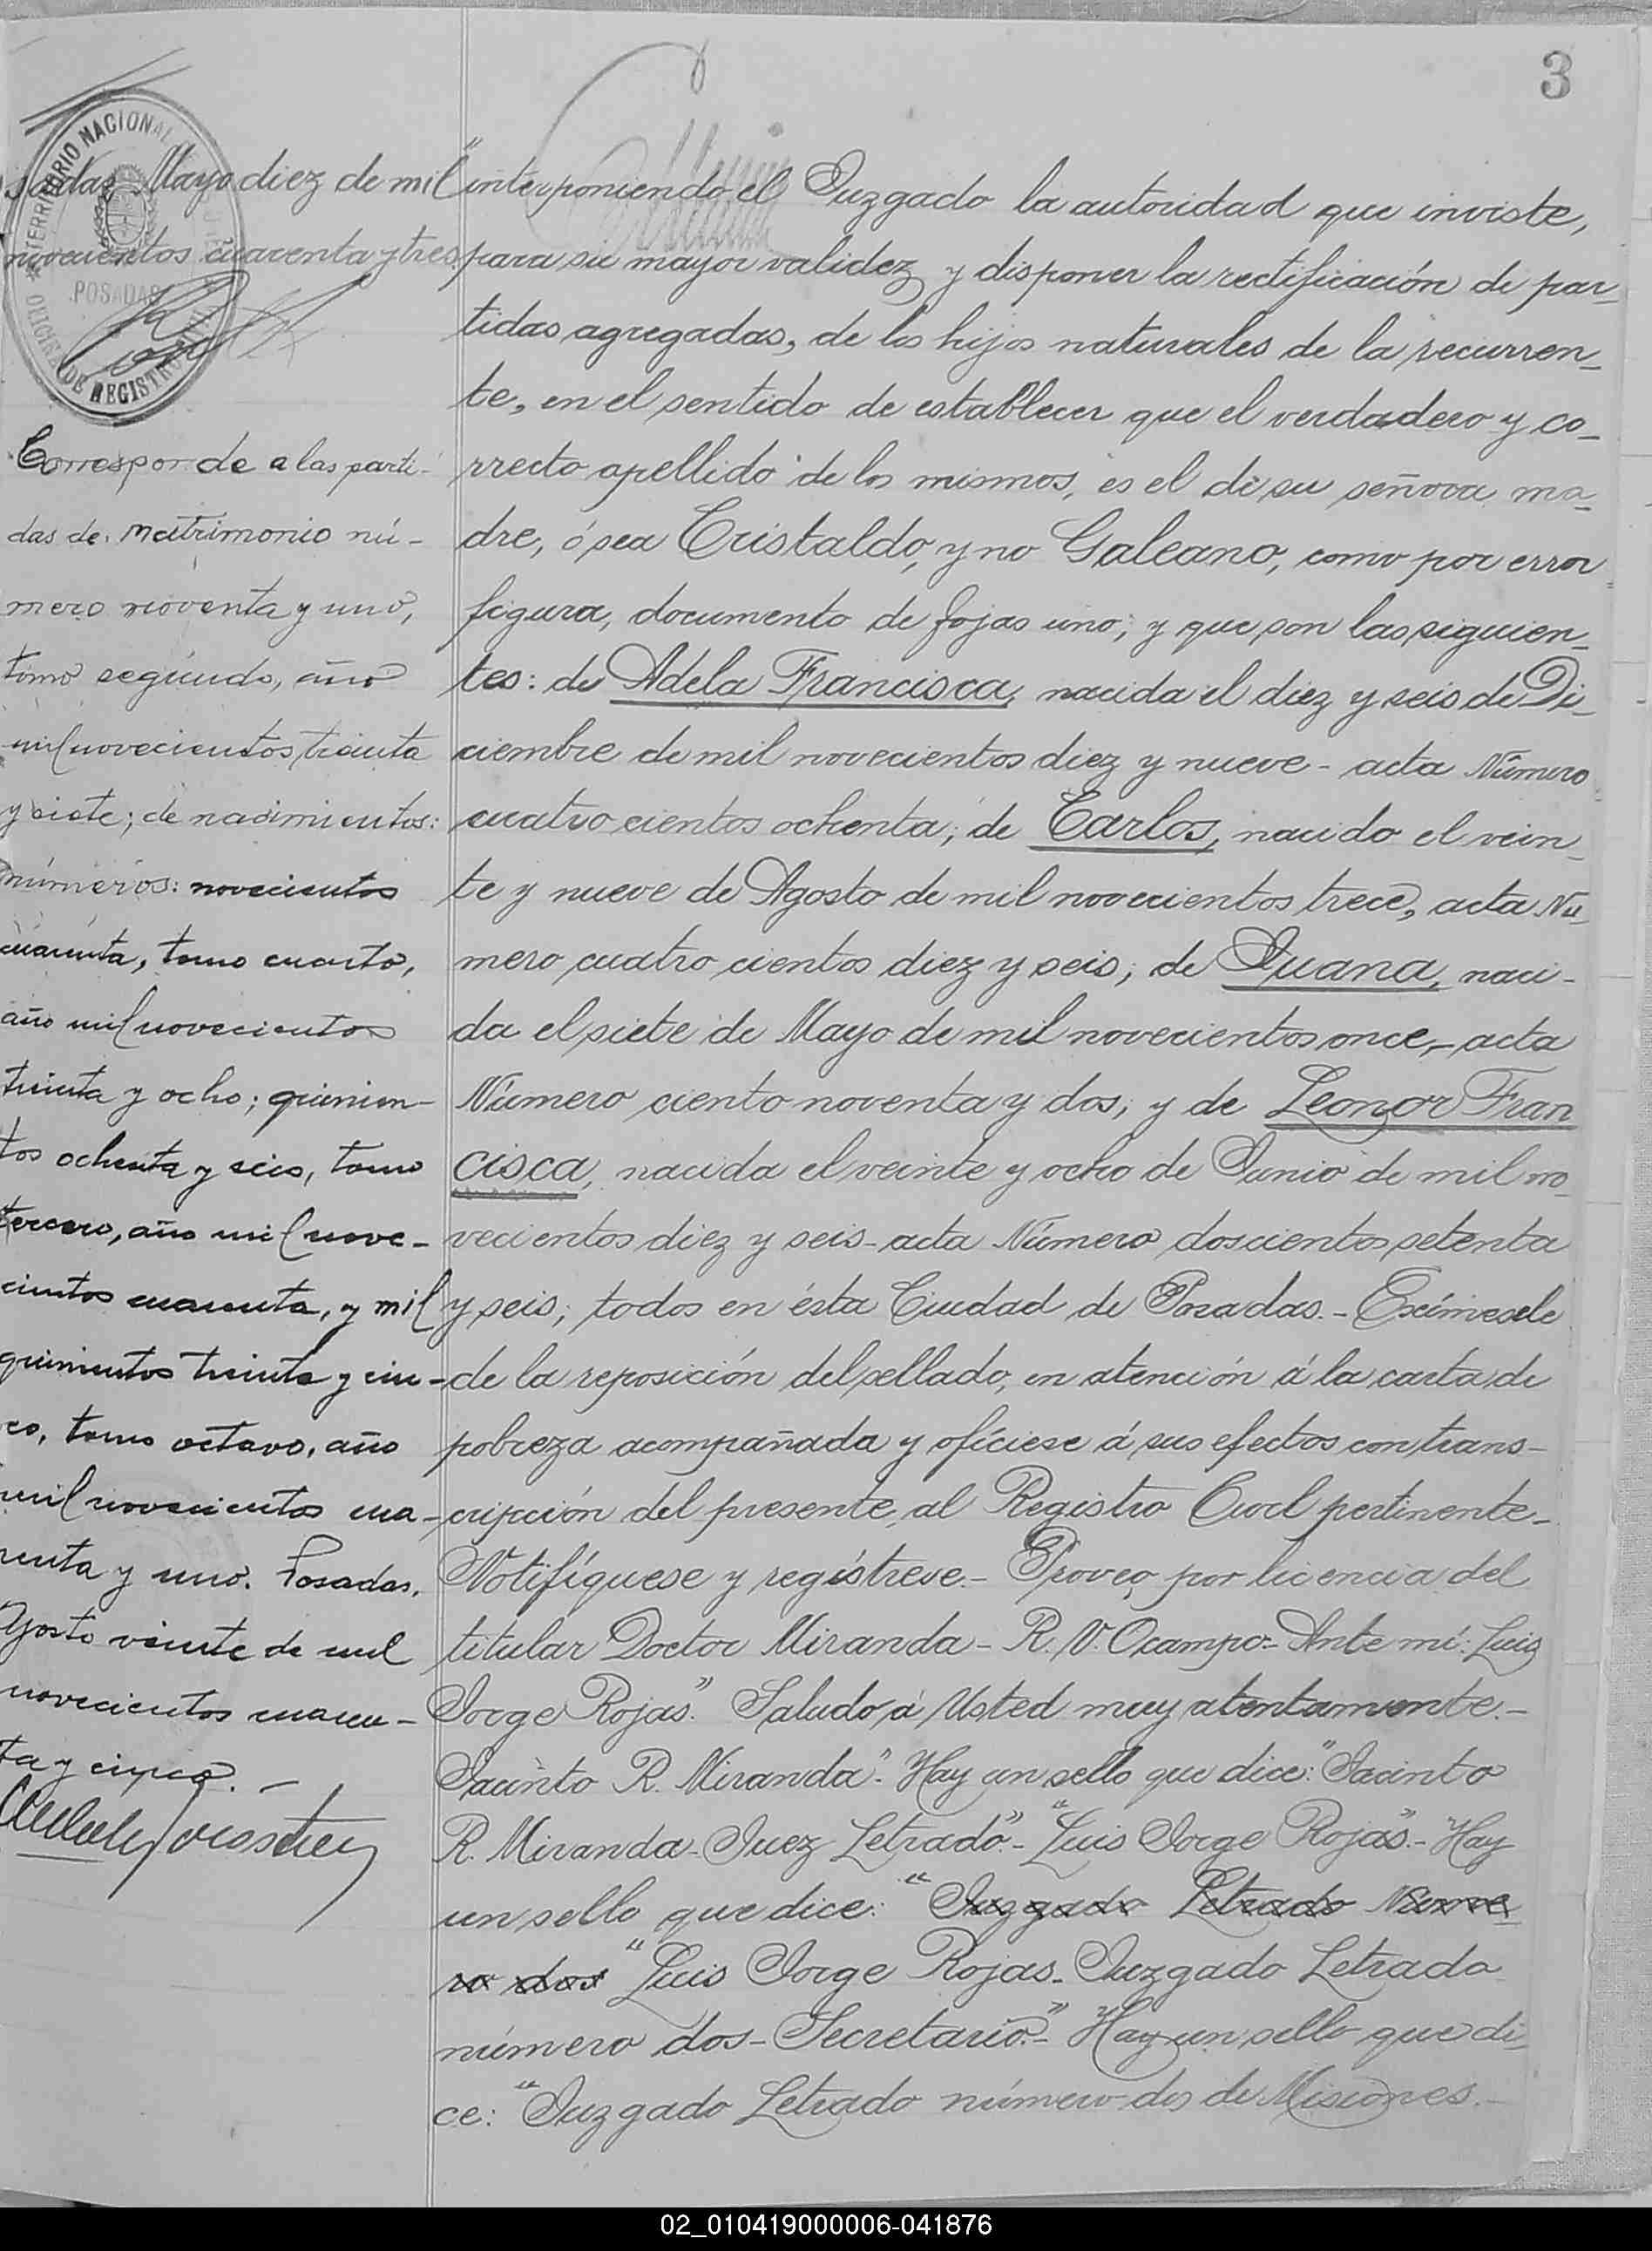 3
TERRITORIO NACIONAL
POSADAS
OFICINA DE REGISTRO
sadas, Mayo diez de mil
novecientos cuarenta y tres.
Corresponde a las parti-
das de matrimonio nú-
mero noventa y uno,
tomo segundo, año
mil novecientos treinta
y siete; de nacimientos:
números: novecientos
cuarenta, tomo cuarto,
año mil novecientos
treinta y ocho; quinien-
tos ochenta y seis, tomo
tercero, año mil nove-
cientos cuarenta, y mil
quinientos treinta y cin-
co, tomo octavo, año
mil novecientos cua-
renta y uno. Posadas,
Agosto veinte de mil
novecientos cuaren-
ta y cinco. -
interponiendo el Juzgado la autoridad que inviste,
para su mayor validez y disponer la rectificación de par_
tidas agregadas, de los hijos naturales de la recurren_
te, en el sentido de establecer que el verdadero y co_
rrecto apellido de los mismos, es el de su señora ma_
dre, ó sea Cristaldo, y no Galeano, como por error
figura, documento de fojas uno; y que son las siguien_
tes: de Adela Francisca, nacida el diez y seis de Di_
ciembre de mil novecientos diez y nueve - acta Número
cuatro cientos ochenta; de Carlos, nacido el vein_
te y nueve de Agosto de mil novecientos trece, acta Nú_
mero cuatro cientos diez y seis; de Juana, naci-
da el siete de Mayo de mil novecientos once,- acta
Número ciento noventa y dos; y de Leonor Fran
cisca, nacida el veinte y ocho de Junio de mil no_
vecientos diez y seis - acta Número doscientos setenta
y seis; todos en ésta Ciudad de Posadas.- Exímesele
de la reposición del sellado, en atención á la carta de
pobreza acompañada y ofíciese á sus efectos con trans-
cripción del presente, al Registro Civil pertinente.-
Notifíquese y regístrese.- Proveo, por licencia del
titular Doctor Miranda - R. V. Ocampo.- Ante mí: Luis
Jorge Rojas". Saludo á Usted muy atentamente.-
Jacinto R. Miranda".- Hay un sello que dice: "Jacinto
R. Miranda - Juez Letrado".- "Luis Jorge Rojas".- Hay
un sello que dice: "Juzgado Letrado Núme
ro dos "Luis Jorge Rojas - Juzgado Letrado
número dos - Secretario".- Hay un sello que di_
ce: "Juzgado Letrado número dos de Misiones.-
02_010419000006-041876